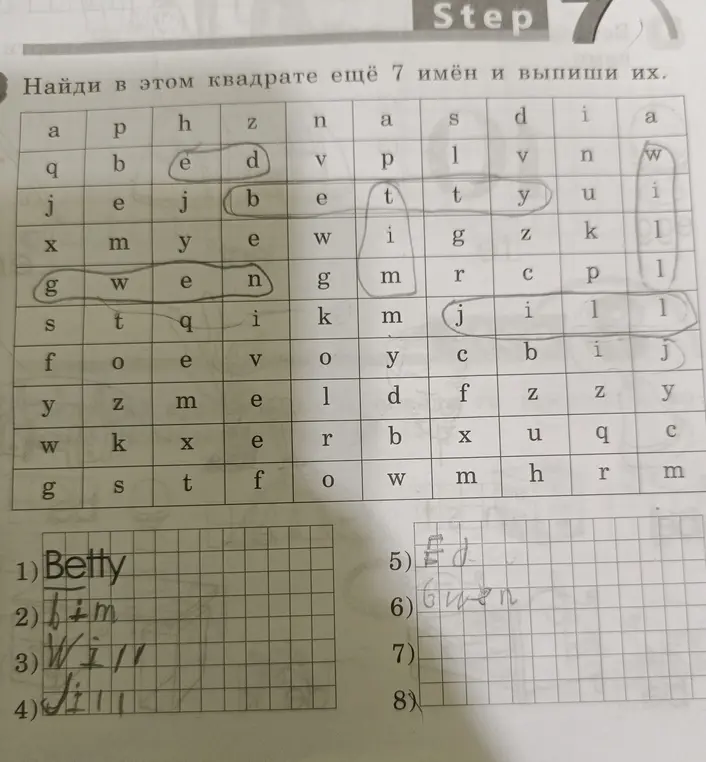 Step 7
Найди в этом квадрате ещё 7 имён и выпиши их.
a p h z n a s d i a
q b e d v p l v n w
j e j b e t t y u i
x m y e w i g z k l
g w e n g m r c p l
s t q i k m j i l l
f o e v o y c b i j
y z m e l d f z z y
w k x e r b x u q c
g s t f o w m h r m
1) Betty
2) tim
3) Will
4) Jill
5) Ed
6) Gwen
7)
8)